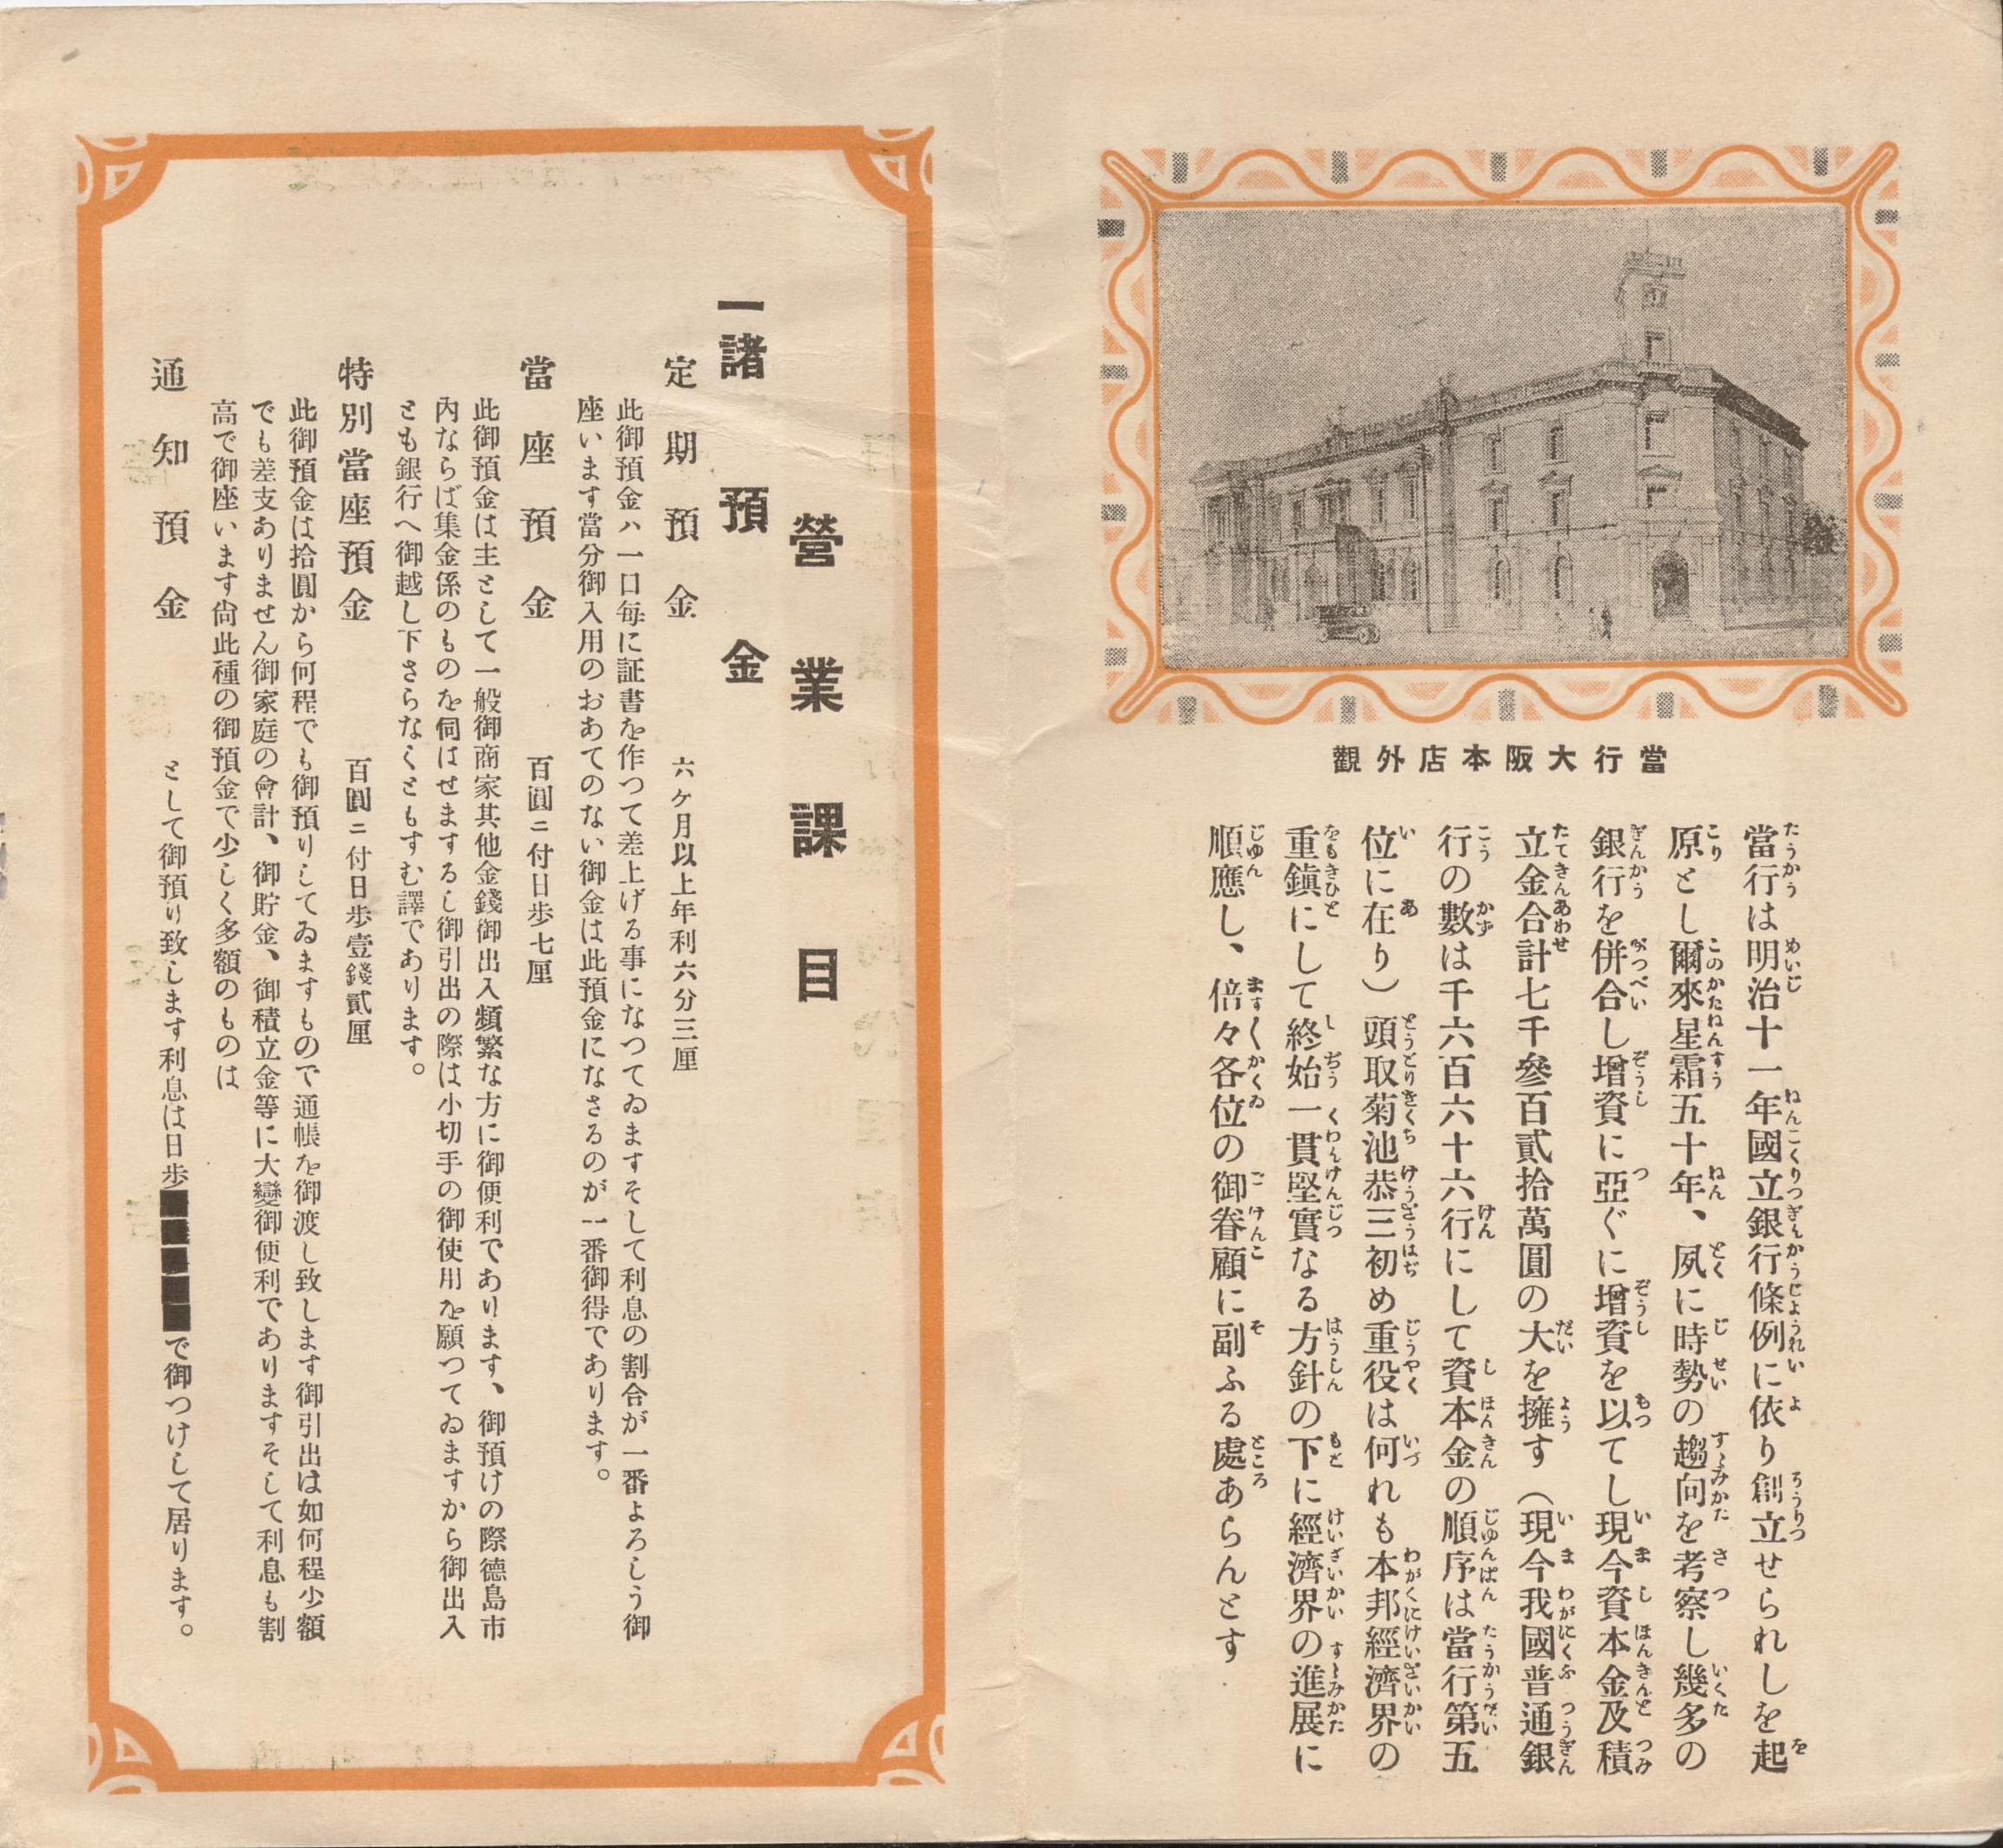 當行大阪本店外觀
當行は明治十一年國立銀行條例に依り創立せられしを起
原とし爾來星霜五十年、夙に時勢の趨向を考察し幾多の
銀行を併合し增資に亞ぐに增資を以てし現今資本金及積
立金合計七千參百貳拾萬圓の大を擁す（現今我國普通銀
行の數は千六百六十六行にして資本金の順序は當行第五
位に在り）頭取菊池恭三初め重役は何れも本邦經濟界の
重鎭にして終始一貫堅實なる方針の下に經濟界の進展に
順應し、倍々各位の御眷顧に副ふる處あらんとす
營業課目
一諸預金
定期預金　六ヶ月以上年利六分三厘
此御預金ハ一口每に証書を作つて差上げる事になつてゐますそして利息の割合が一番よろしう御
座います當分御入用のおあてのない御金は此預金になさるのが一番御得であります。
當座預金　百圓ニ付日步七厘
此御預金は主として一般御商家其他金錢御出入頻繁な方に御便利であります、御預けの際德島市
內ならば集金係のものを伺はせまするし御引出の際は小切手の御使用を願つてゐますから御出入
とも銀行へ御越し下さらなくともすむ譯であります。
特別當座預金　百圓ニ付日步壹錢貳厘
此御預金は拾圓から何程でも御預りしてゐますもので通帳を御渡し致します御引出は如何程少額
でも差支ありません御家庭の會計、御貯金、御積立金等に大變御便利でありますそして利息も割
高で御座います尙此種の御預金で少しく多額のものは
通知預金　として御預り致します利息は日步で御つけして居ります。